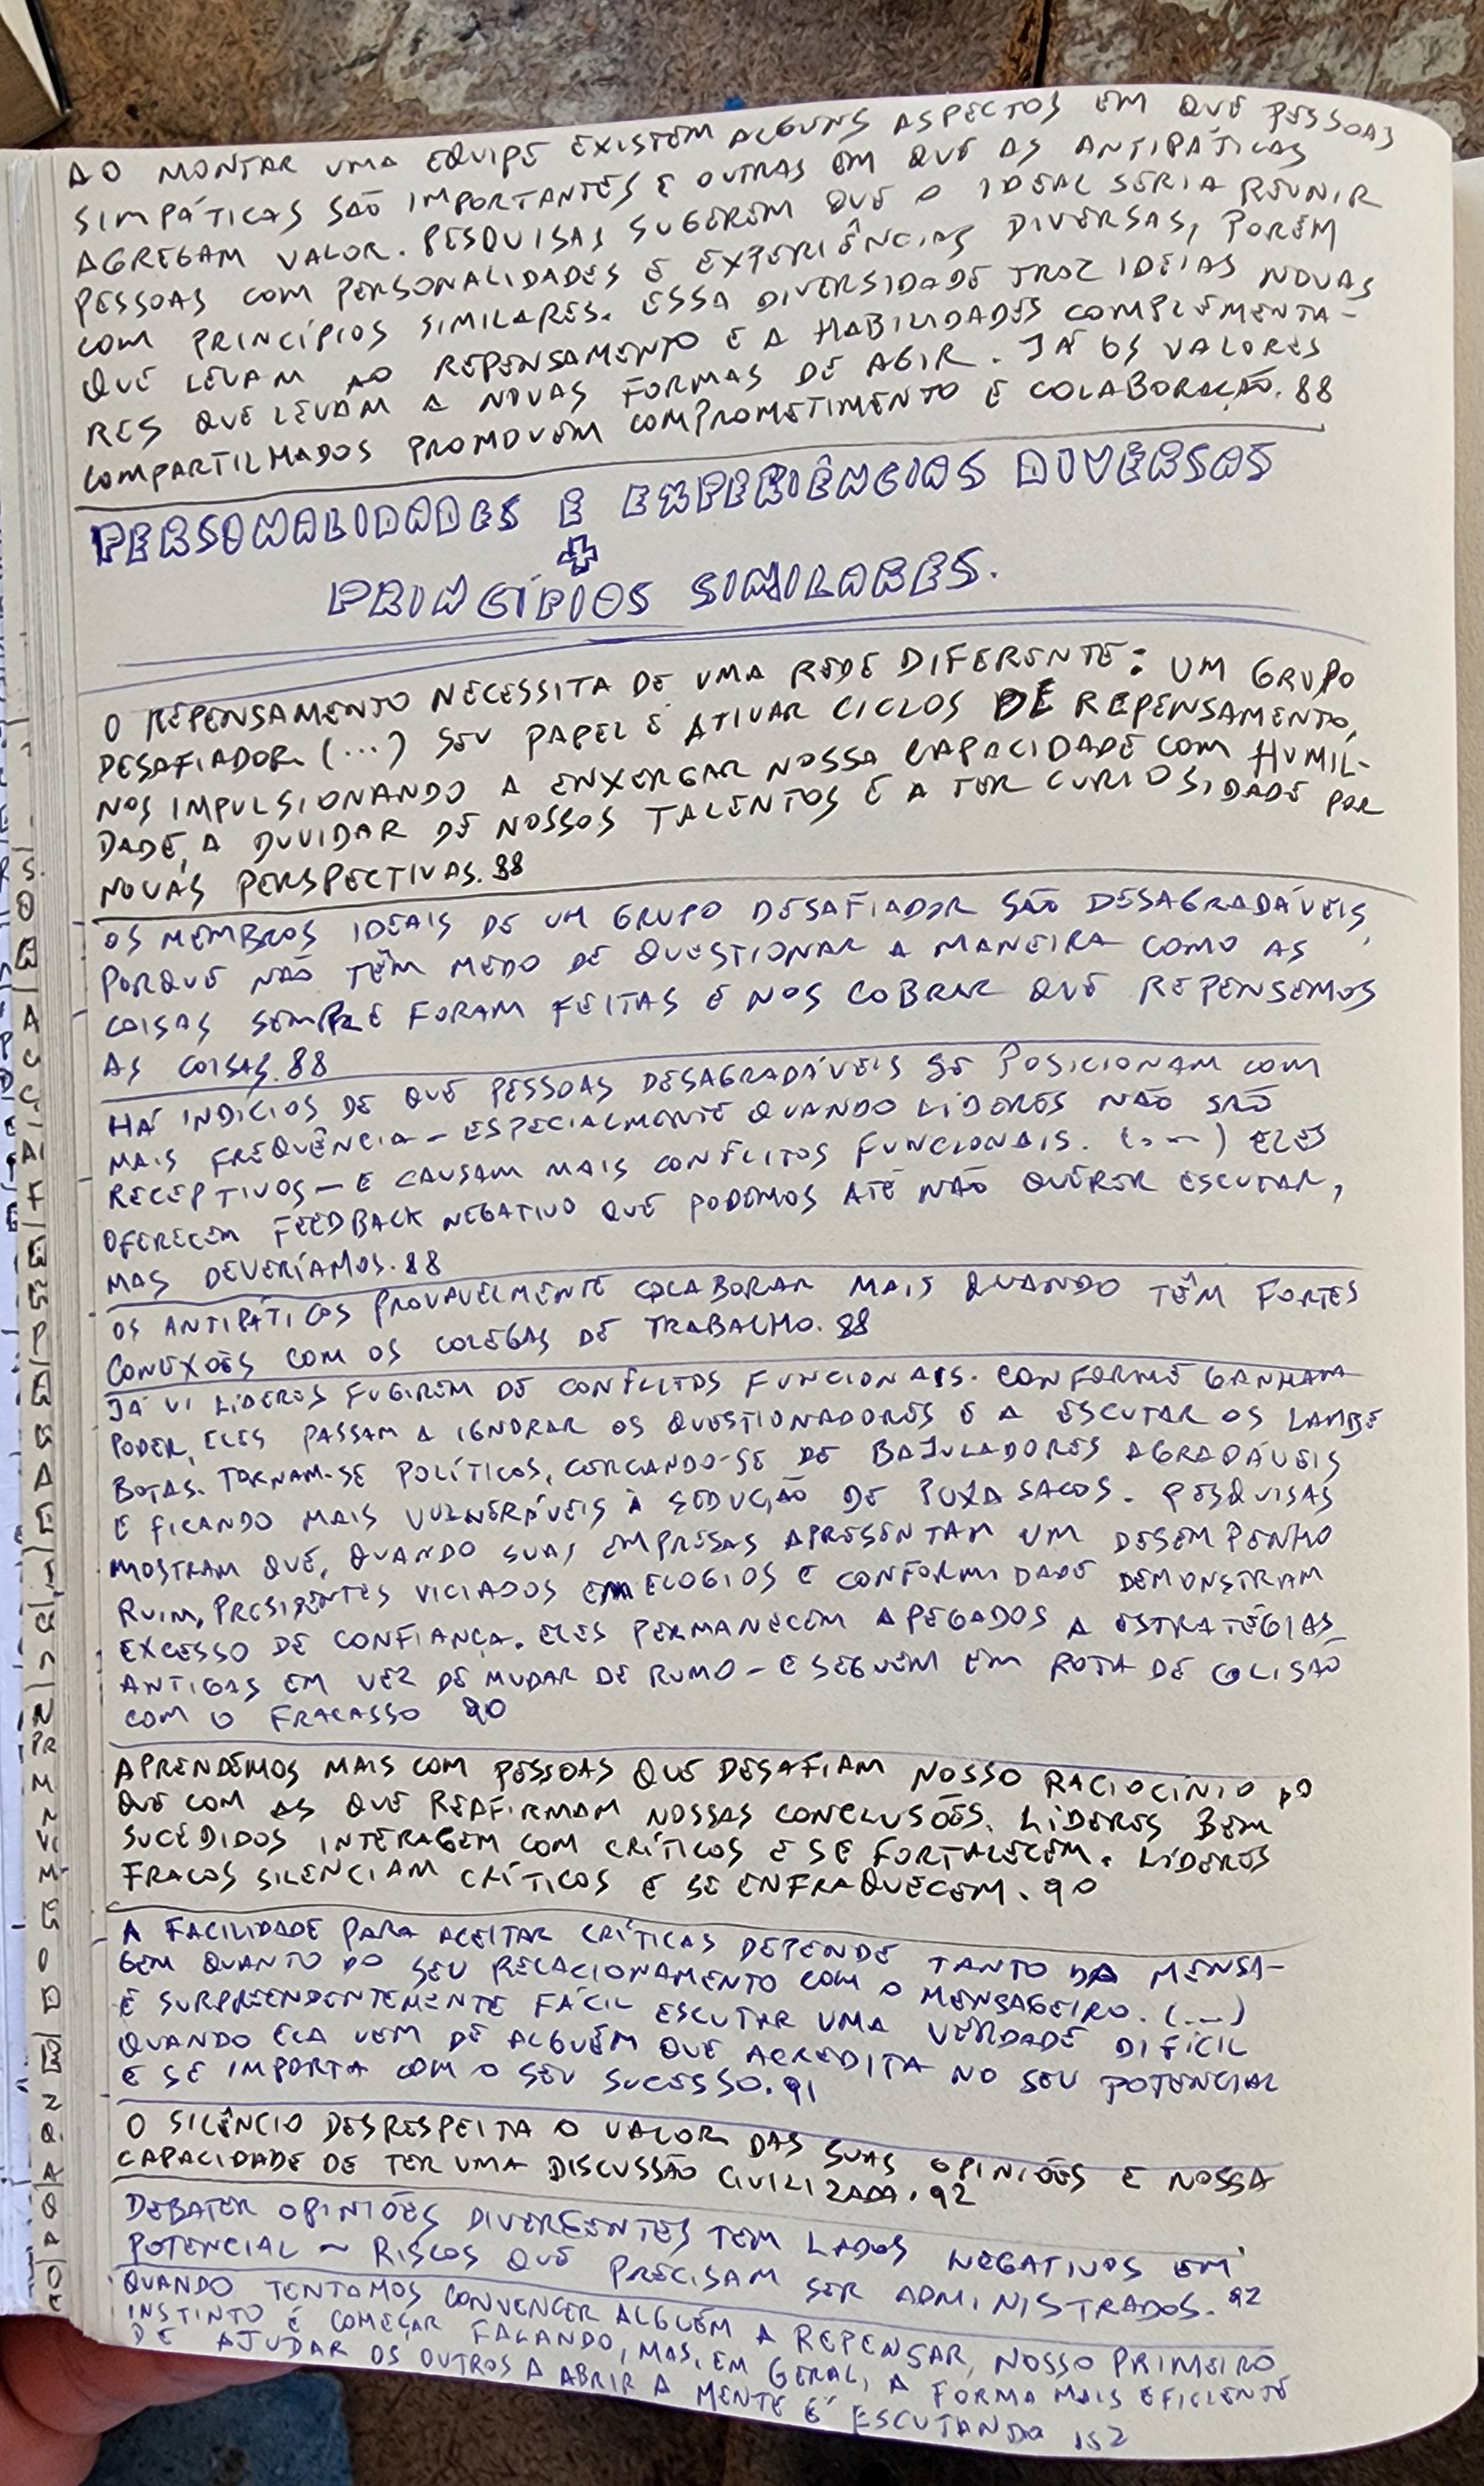 AO MONTAR UMA EQUIPE EXISTEM ALGUNS ASPECTOS EM QUE PESSOAS
SIMPÁTICAS SÃO IMPORTANTES E OUTRAS EM QUE AS ANTIPÁTICAS
AGREGAM VALOR. PESQUISAS SUGEREM QUE O IDEAL SERIA REUNIR
PESSOAS COM PERSONALIDADES E EXPERIÊNCIAS DIVERSAS, PORÉM
COM PRINCÍPIOS SIMILARES. ESSA DIVERSIDADE TRAZ IDEIAS NOVAS
QUE LEVAM AO REPENSAMENTO E A HABILIDADES COMPLEMENTA-
RES QUE LEVAM A NOVAS FORMAS DE AGIR. JÁ OS VALORES
COMPARTILHADOS PROMOVEM COMPROMETIMENTO E COLABORAÇÃO. 88
PERSONALIDADES E EXPERIÊNCIAS DIVERSAS
+
PRINCÍPIOS SIMILARES.
O REPENSAMENTO NECESSITA DE UMA REDE DIFERENTE: UM GRUPO
DESAFIADOR. (...) SEU PAPEL É ATIVAR CICLOS DE REPENSAMENTO,
NOS IMPULSIONANDO A ENXERGAR NOSSA CAPACIDADE COM HUMIL-
DADE, A DUVIDAR DE NOSSOS TALENTOS E A TER CURIOSIDADE POR
NOVAS PERSPECTIVAS. 88
OS MEMBROS IDEAIS DE UM GRUPO DESAFIADOR SÃO DESAGRADÁVEIS,
PORQUE NÃO TÊM MEDO DE QUESTIONAR A MANEIRA COMO AS
COISAS SEMPRE FORAM FEITAS E NOS COBRAR QUE REPENSEMOS
AS COISAS. 88
HÁ INDÍCIOS DE QUE PESSOAS DESAGRADÁVEIS SE POSICIONAM COM
MAIS FREQUÊNCIA - ESPECIALMENTE QUANDO LÍDERES NÃO SÃO
RECEPTIVOS - E CAUSAM MAIS CONFLITOS FUNCIONAIS. (...) ELES
OFERECEM FEEDBACK NEGATIVO QUE PODEMOS ATÉ NÃO QUERER ESCUTAR,
MAS DEVERÍAMOS. 88
OS ANTIPÁTICOS PROVAVELMENTE COLABORAM MAIS QUANDO TÊM FORTES
CONEXÕES COM OS COLEGAS DE TRABALHO. 88
JÁ VI LÍDERES FUGIREM DE CONFLITOS FUNCIONAIS. CONFORME GANHAM
PODER, ELES PASSAM A IGNORAR OS QUESTIONADORES E A ESCUTAR OS LAMBE
BOTAS. TORNAM-SE POLÍTICOS, CERCANDO-SE DE BAJULADORES AGRADÁVEIS
E FICANDO MAIS VULNERÁVEIS À SEDUÇÃO DE PUXA SACOS. PESQUISAS
MOSTRAM QUE, QUANDO SUAS EMPRESAS APRESENTAM UM DESEMPENHO
RUIM, PRESIDENTES VICIADOS EM ELOGIOS E CONFORMIDADE DEMONSTRAM
EXCESSO DE CONFIANÇA. ELES PERMANECEM APEGADOS A ESTRATÉGIAS
ANTIGAS EM VEZ DE MUDAR DE RUMO - E SEGUEM EM ROTA DE COLISÃO
COM O FRACASSO 90
APRENDEMOS MAIS COM PESSOAS QUE DESAFIAM NOSSO RACIOCÍNIO DO
QUE COM AS QUE REAFIRMAM NOSSAS CONCLUSÕES. LÍDERES BEM
SUCEDIDOS INTERAGEM COM CRÍTICOS E SE FORTALECEM. LÍDERES
FRACOS SILENCIAM CRÍTICOS E SE ENFRAQUECEM. 90
A FACILIDADE PARA ACEITAR CRÍTICAS DEPENDE TANTO DA MENSA-
GEM QUANTO DO SEU RELACIONAMENTO COM O MENSAGEIRO. (...)
É SURPREENDENTEMENTE FÁCIL ESCUTAR UMA VERDADE DIFÍCIL
QUANDO ELA VEM DE ALGUÉM QUE ACREDITA NO SEU POTENCIAL
E SE IMPORTA COM O SEU SUCESSO. 91
O SILÊNCIO DESRESPEITA O VALOR DAS SUAS OPINIÕES E NOSSA
CAPACIDADE DE TER UMA DISCUSSÃO CIVILIZADA. 92
DEBATER OPINIÕES DIVERGENTES TEM LADOS NEGATIVOS EM
POTENCIAL ~ RISCOS QUE PRECISAM SER ADMINISTRADOS. 92
QUANDO TENTAMOS CONVENCER ALGUÉM A REPENSAR, NOSSO PRIMEIRO
INSTINTO É COMEÇAR FALANDO, MAS, EM GERAL, A FORMA MAIS EFICIENTE
DE AJUDAR OS OUTROS A ABRIR A MENTE É ESCUTANDO 152